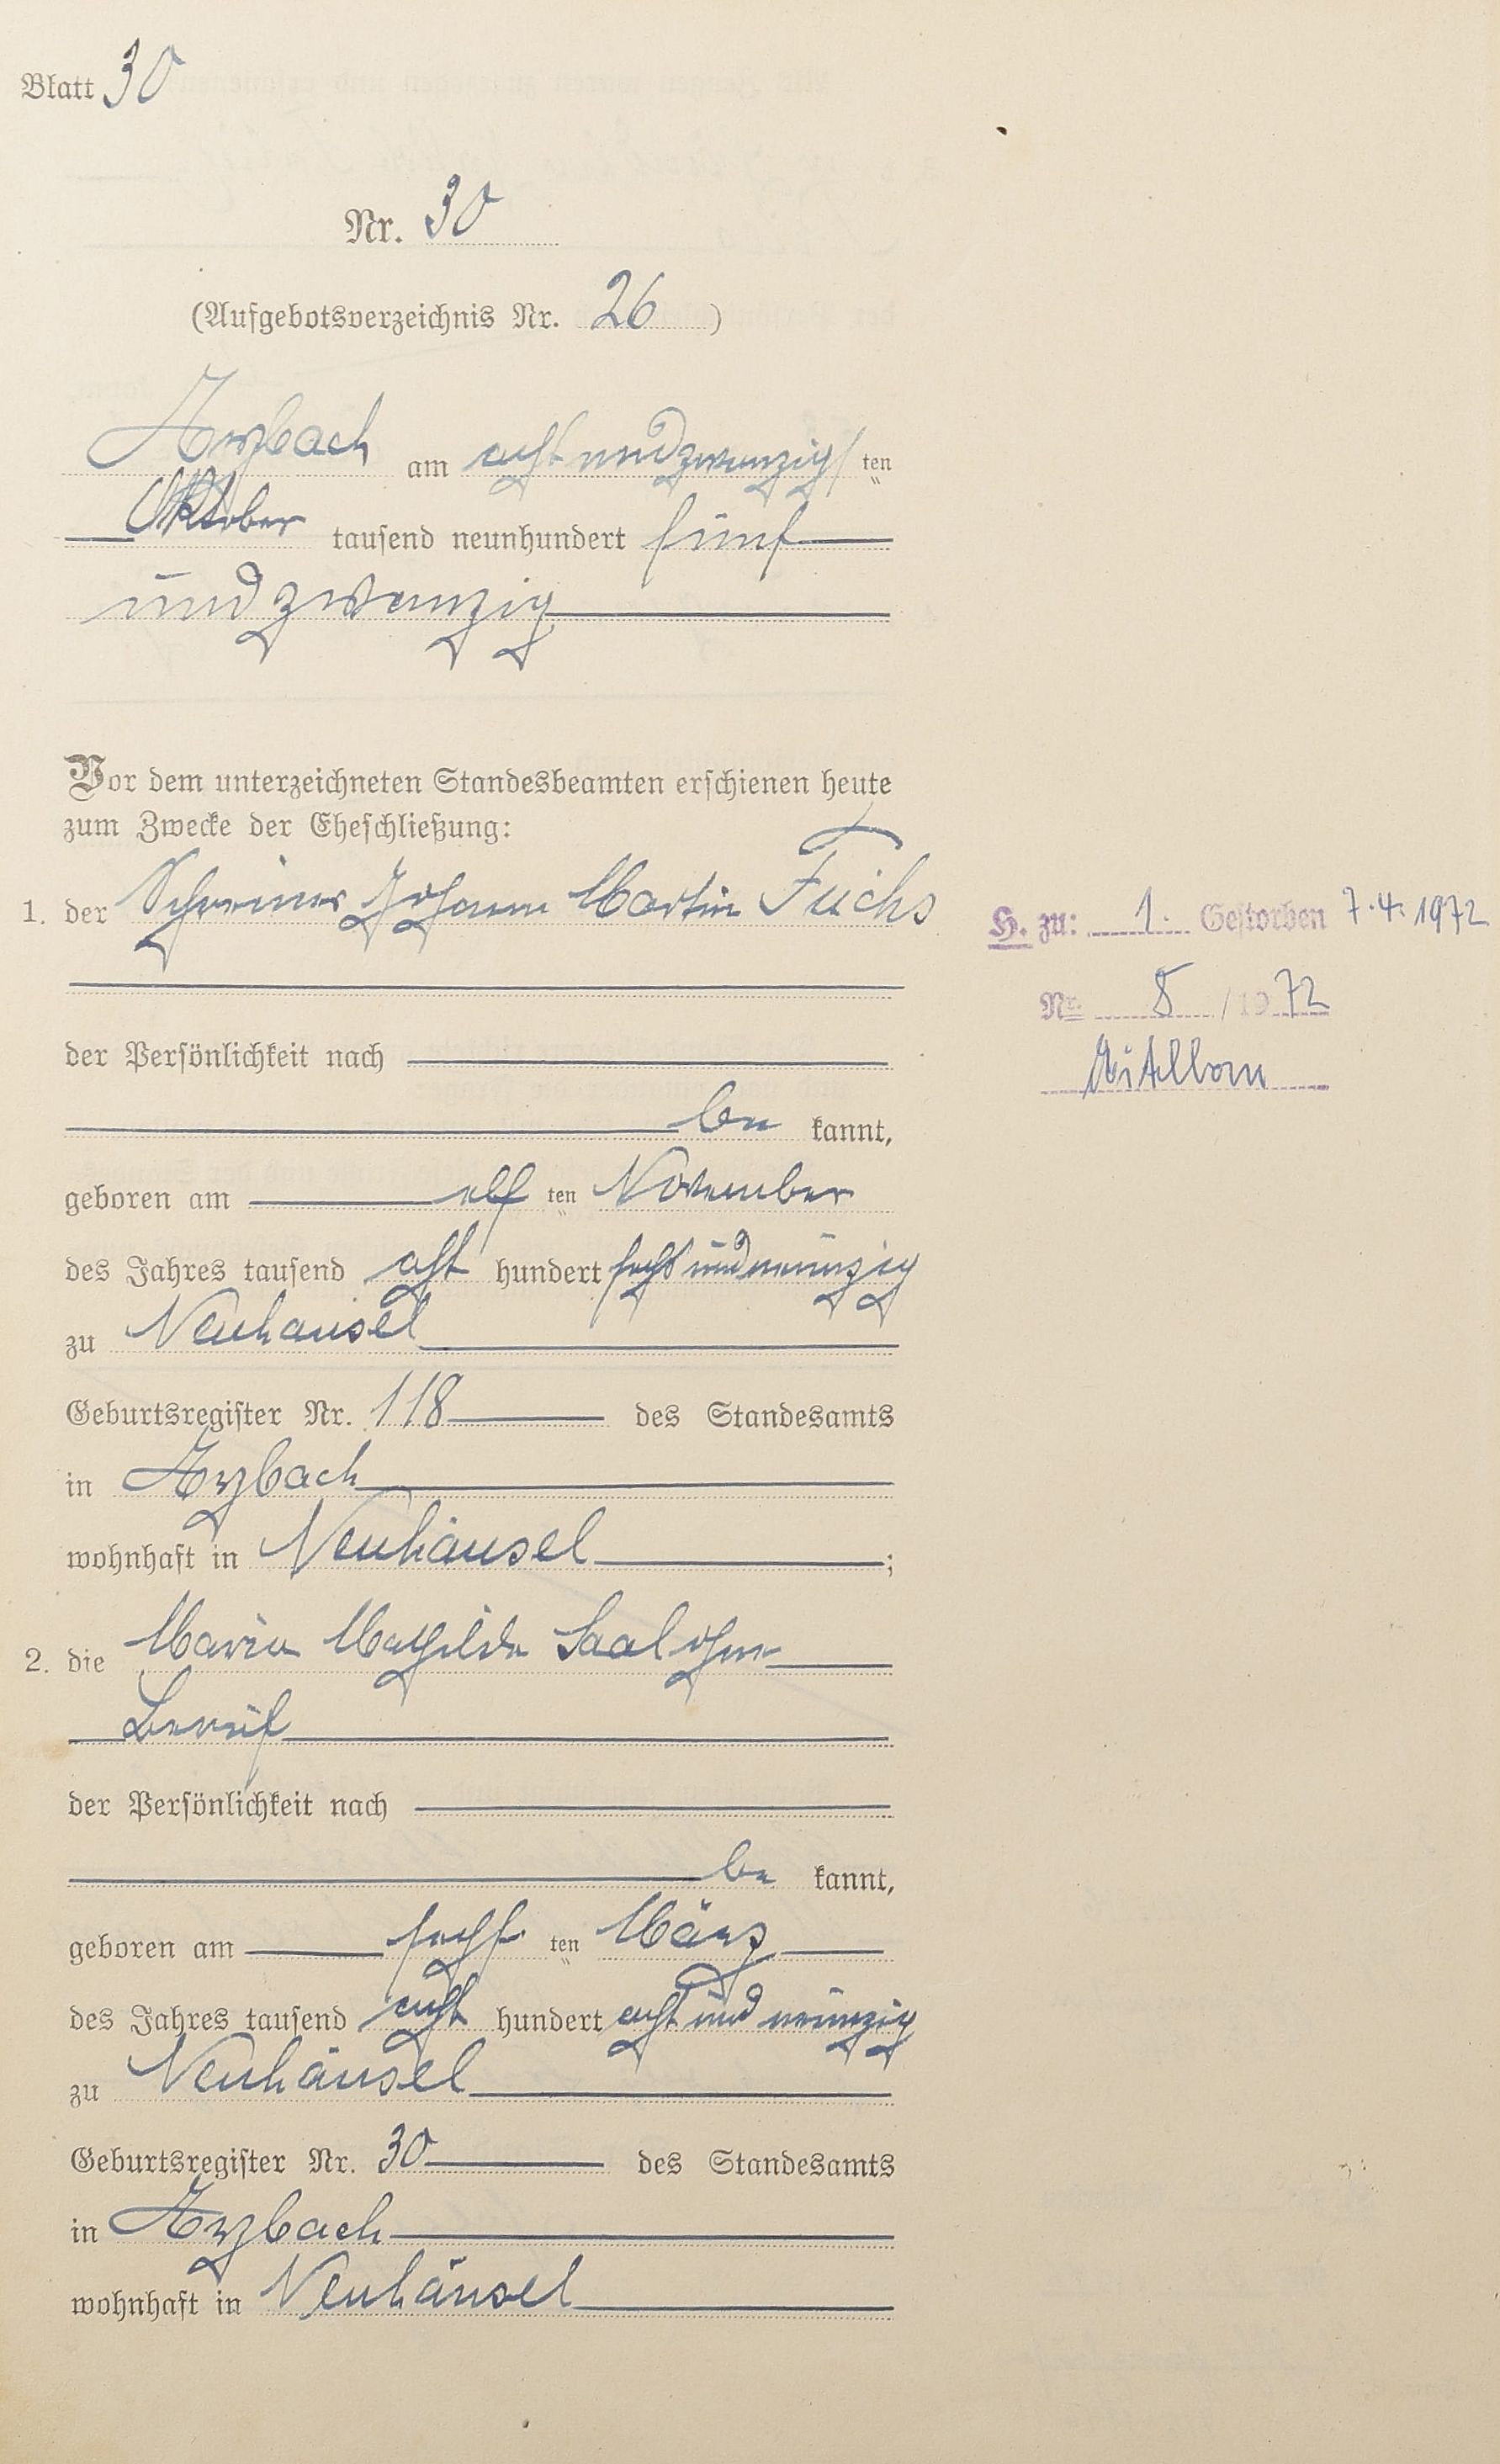 Blatt 30
Nr. 30
(Aufgebotsverzeichnis Nr. 26 )
Arzbach am acht und zwanzigsten
Oktober tausend neunhundert fünf
und zwanzig
Vor dem unterzeichneten Standesbeamten erschienen heute
zum Zwecke der Eheschließung:
1. der Schreiner Johann Martin Fuchs
der Persönlichkeit nach
be kannt,
geboren am elf ten November
des Jahres tausend acht hundert sechs und neunzig
zu Neuhäusel
Geburtsregister Nr. 118 des Standesamts
in Arzbach
wohnhaft in Neuhäusel ;
2. die Maria Mathilde Saal ohne
Beruf
der Persönlichkeit nach
be kannt,
geboren am sechs ten März
des Jahres tausend acht hundert acht und neunzig
zu Neuhäusel
Geburtsregister Nr. 30 des Standesamts
in Arzbach
wohnhaft in Neuhäusel
H. zu: 1. Gestorben 7.4.1972
Nr. 8 /1972